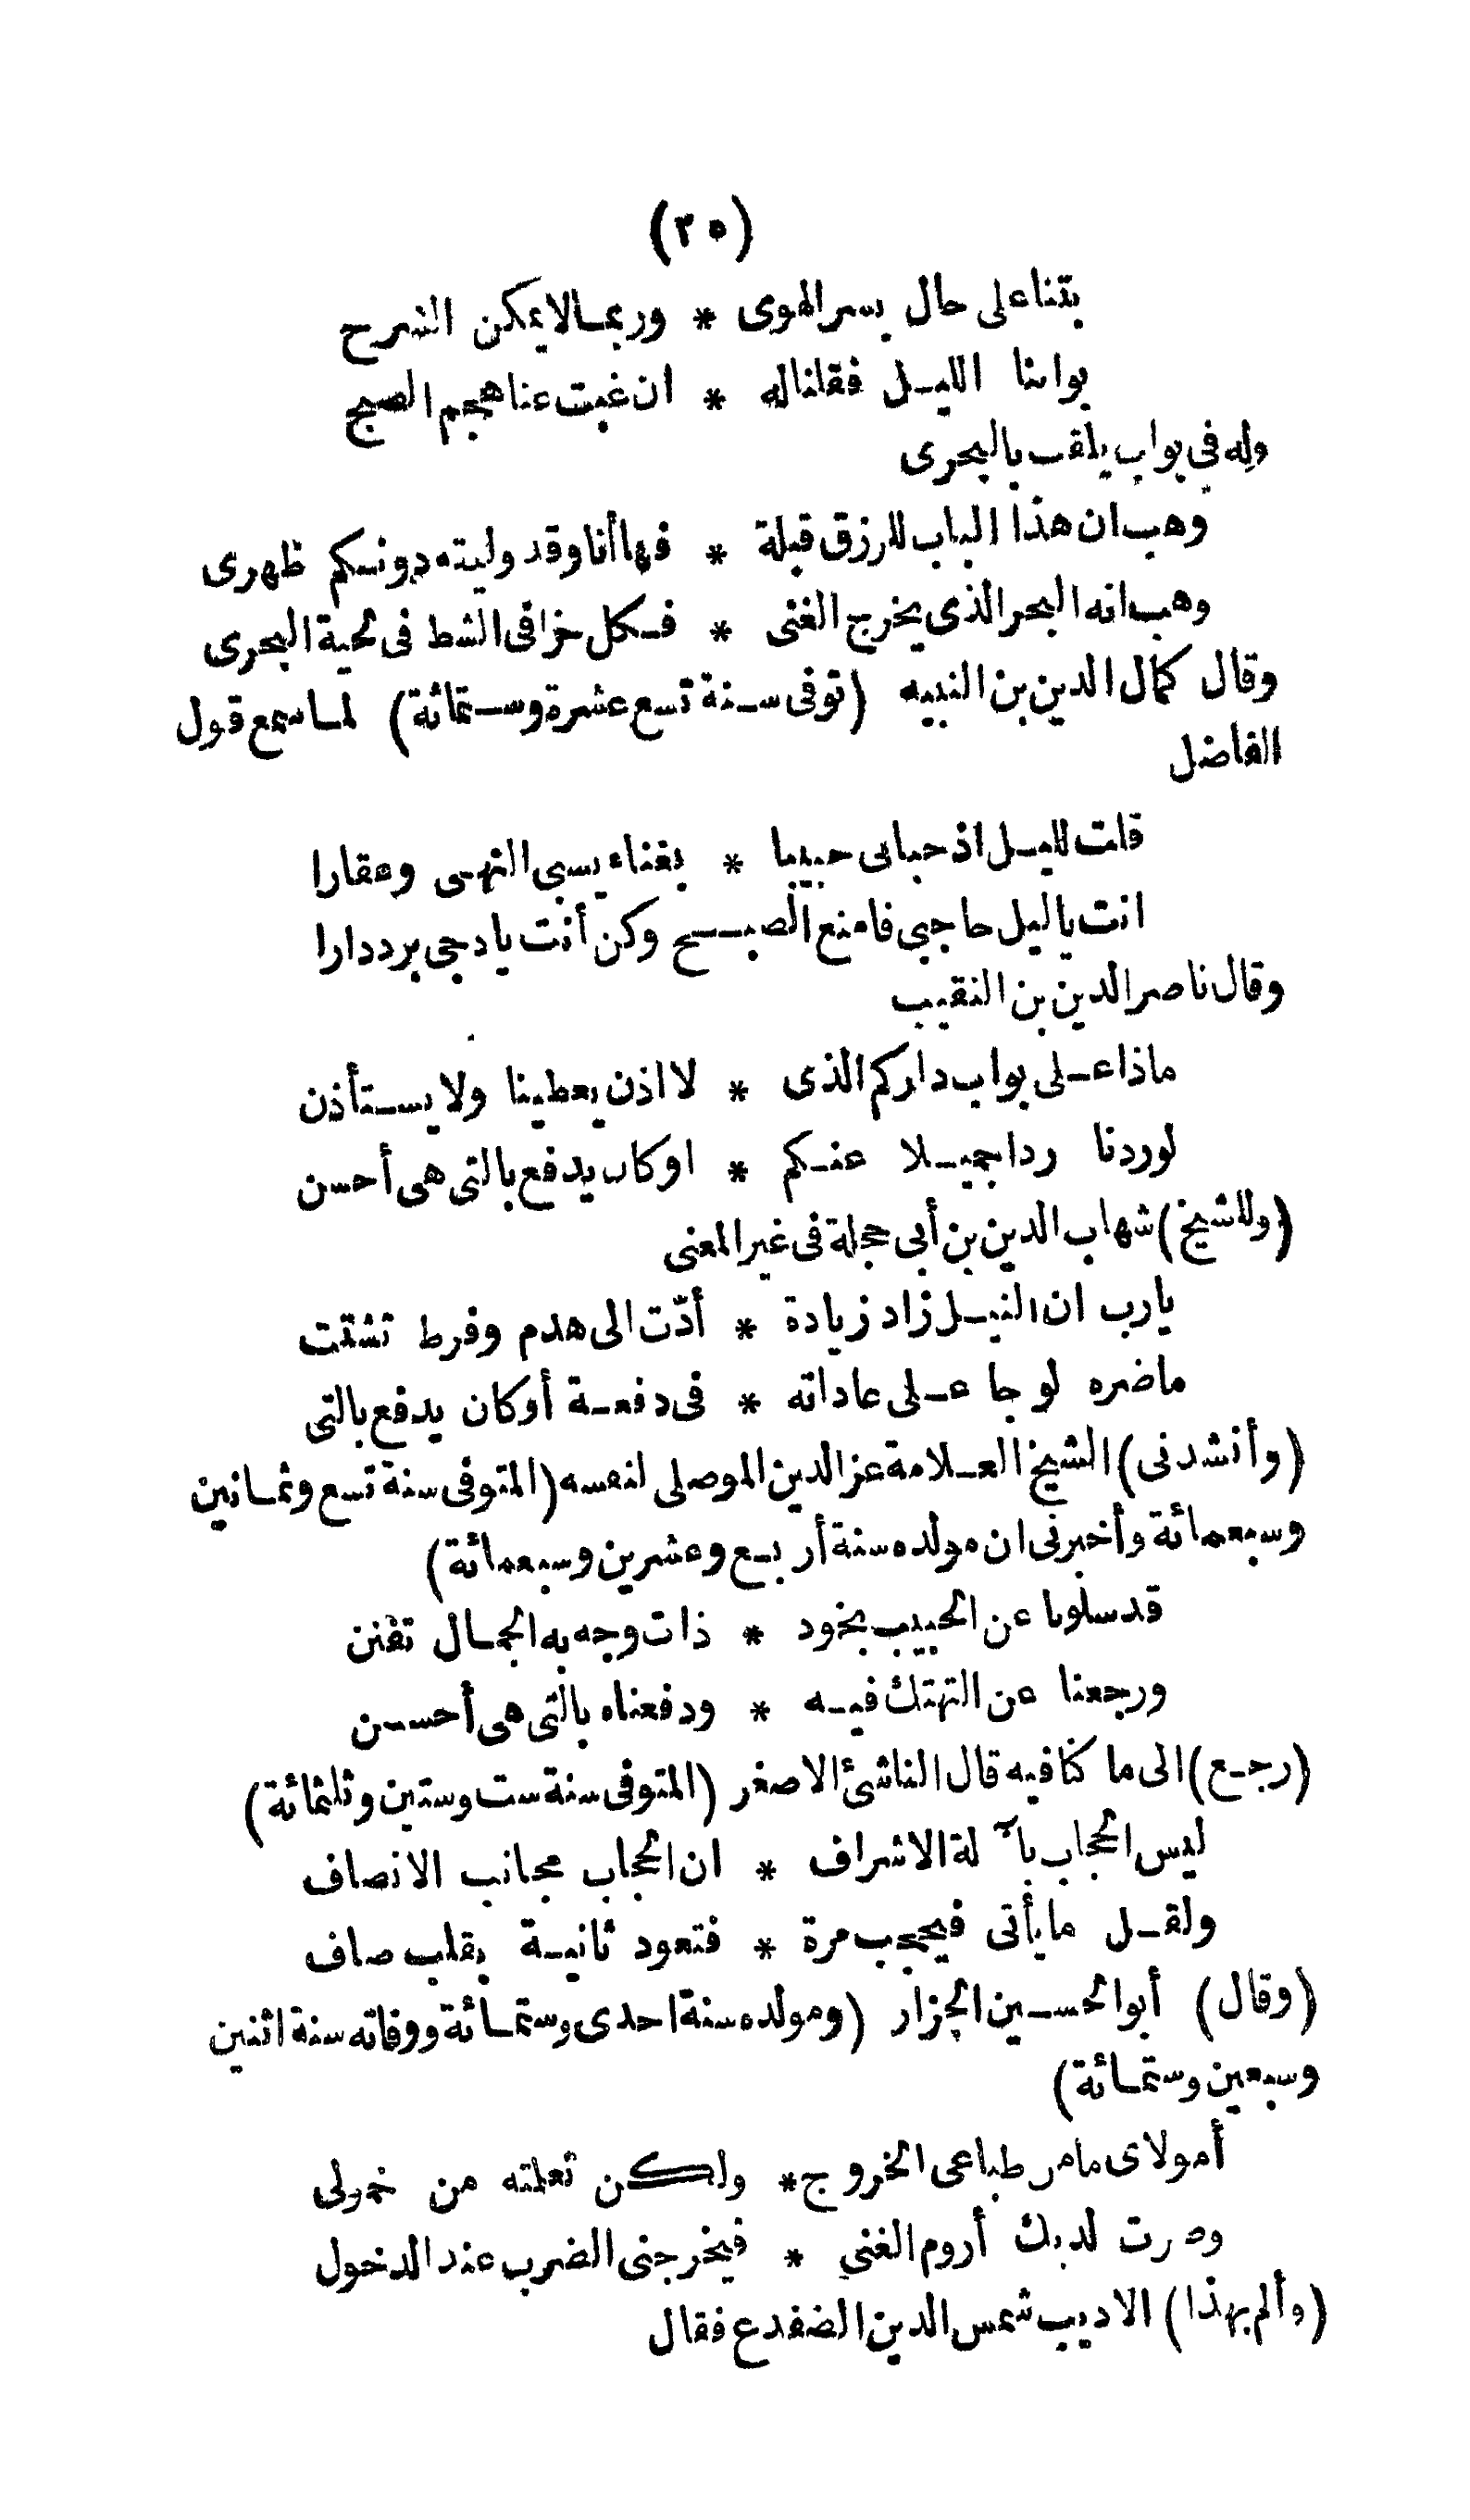 (٣٥)
بتنا على حال يسر الهوى * وربما لا يمكن الشرح
بوابنا الليل فقلنا له * ان غبت عنا هجم الصبح
وله فى بواب يلقب بالبحرى
وهب ان هذا الباب للرزق قبلة * فها أنا وقد وليته دونكم ظهرى
وهب انه البحر الذى يخرج الغنى * فكل خرا فى الشط فى لحية البحرى
وقال كمال الدين بن النبيه (توفى سنة تسع عشرة وستمائة) لما سمع قول
الفاضل
قلت لليل اذ حبانى حبيبا * بغناء يسبى النهى وعقارا
انت يا ليل حاجبى فامنع الصبح وكن أنت يا دجى برددارا
وقال ناصر الدين بن النقيب
ماذا على بواب داركم الذى * لا اذن يعطينا ولا يستأذن
لو ردنا ردا جميلا عنكم * او كان يدفع بالتى هى أحسن
(وللشيخ) شهاب الدين بن أبى حجلة فى غير المعنى
يارب ان النيل زاد زيادة * أدّت الى هدم وفرط تشتت
ما ضره لو جا على عاداته * فى دفعة أو كان يدفع بالتى
(وأنشدنى) الشيخ العلامة عز الدين الموصلى لنفسه (المتوفى سنة تسع وثمانين
وسبعمائة وأخبرنى ان مولده سنة أربع وعشرين وسبعمائة)
قد سلونا عن الحبيب بخود * ذات وجه به الجمال تفنن
ورجعنا عن التهتك فيه * ودفعناه بالتى هى أحسن
(رجع) الى ما كنا فيه قال الناشئ الاصغر (المتوفى سنة ست وستين وثلثمائة)
ليس الحجاب بآلة الاشراف * ان الحجاب مجانب الانصاف
ولقل ما يأتى فيحجب مرة * فتعود ثانية بقلب صاف
(وقال) أبو الحسين الجزار (ومولده سنة احدى وستمائة ووفاته سنة اثنين
وسبعين وستمائة)
أمولاى ما من طباعى الخروج * ولكن تعلمته من خمولى
وصرت لديك أروم الغنى * فيخرجنى الضرب عند الدخول
(وألم بهذا) الاديب شمس الدين الضفدع فقال